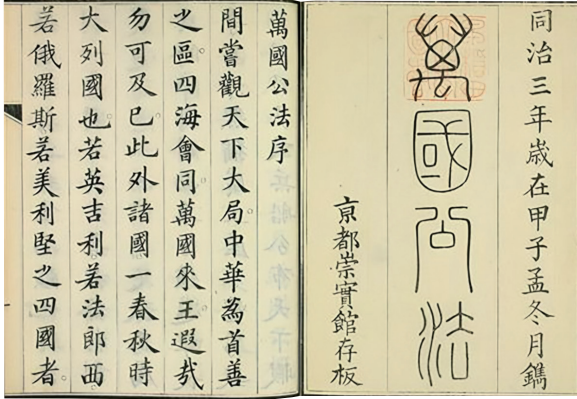 同治三年歲在甲子孟冬月鐫
萬國公法
亰都崇實館存板
萬國公法序
間嘗觀天下大局中華為首善
之區四海會同萬國來王遐哉
勿可及已此外諸國一春秋時
大列國也若英吉利若法郎西
若俄羅斯若美利堅之四國者